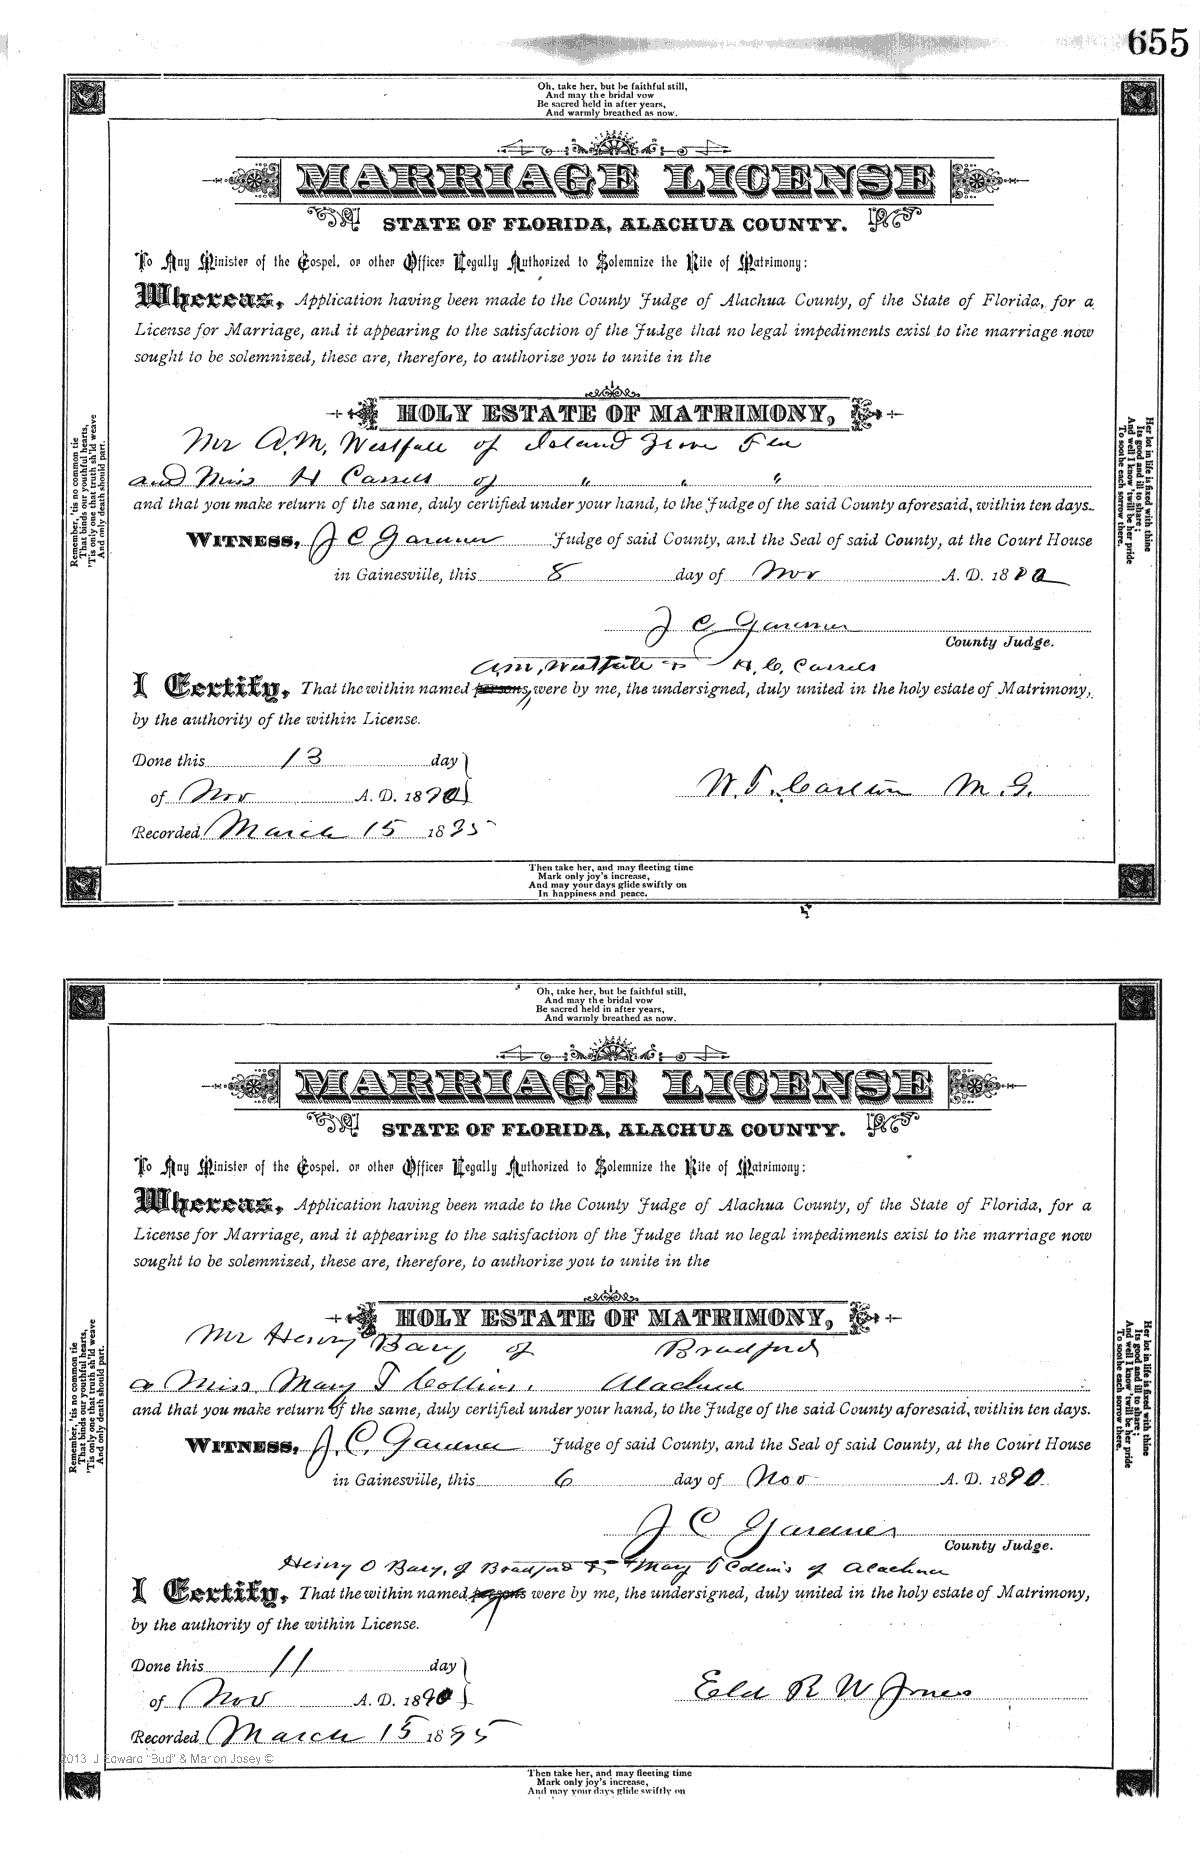 655
Oh, take her, but be faithful still,
And may the bridal vow
Be sacred held in after years,
And warmly breathed as now.
MARRIAGE LICENSE
STATE OF FLORIDA, ALACHUA COUNTY.
To Any Minister of the Gospel, or other Officer Legally Authorized to Solemnize the Rite of Matrimony:
Whereas, Application having been made to the County Judge of Alachua County, of the State of Florida, for a
License for Marriage, and it appearing to the satisfaction of the Judge that no legal impediments exist to the marriage now
sought to be solemnized, these are, therefore, to authorize you to unite in the
HOLY ESTATE OF MATRIMONY,
Mr A. M. Westfall of Island Grove Fla
and Miss H Cassels of " " "
and that you make return of the same, duly certified under your hand, to the Judge of the said County aforesaid, within ten days.
WITNESS, J C Gardner Judge of said County, and the Seal of said County, at the Court House
in Gainesville, this 8 day of Nov A. D. 1890
J C Gardner
County Judge.
A. M. Westfall & H. C. Cassels
I Certify, That the within named persons, were by me, the undersigned, duly united in the holy estate of Matrimony,
by the authority of the within License.
Done this 13 day
of Nov A. D. 1890
W. T. Carlton M. G.
Recorded March 15 1895
Then take her, and may fleeting time
Mark only joy's increase,
And may your days glide swiftly on
In happiness and peace.
Remember, 'tis no common tie
That binds our youthful hearts,
'Tis only one that truth sh'ld weave
And only death should part.
Her lot in life is fixed with thine
Its good and ill to share;
And well I know 'twill be her pride
To soothe each sorrow there.
Oh, take her, but be faithful still,
And may the bridal vow
Be sacred held in after years,
And warmly breathed as now.
MARRIAGE LICENSE
STATE OF FLORIDA, ALACHUA COUNTY.
To Any Minister of the Gospel, or other Officer Legally Authorized to Solemnize the Rite of Matrimony:
Whereas, Application having been made to the County Judge of Alachua County, of the State of Florida, for a
License for Marriage, and it appearing to the satisfaction of the Judge that no legal impediments exist to the marriage now
sought to be solemnized, these are, therefore, to authorize you to unite in the
HOLY ESTATE OF MATRIMONY,
Mr Henry Bary of Bradford
& Miss Mary T Collins. Alachua
and that you make return of the same, duly certified under your hand, to the Judge of the said County aforesaid, within ten days.
WITNESS, J. C. Gardner Judge of said County, and the Seal of said County, at the Court House
in Gainesville, this 6 day of Nov A. D. 1890
J C Gardner
County Judge.
Henry O Bary, of Bradford & Mary T Collins of Alachua
I Certify, That the within named persons were by me, the undersigned, duly united in the holy estate of Matrimony,
by the authority of the within License.
Done this 11 day
of Nov A. D. 1890
Eld R W Jones
Recorded March 15 1895
2013 J Edward "Bud" & Marion Josey ©
Then take her, and may fleeting time
Mark only joy's increase,
And may your days glide swiftly on
Remember, 'tis no common tie
That binds our youthful hearts,
'Tis only one that truth sh'ld weave
And only death should part.
Her lot in life is fixed with thine
Its good and ill to share;
And well I know 'twill be her pride
To soothe each sorrow there.